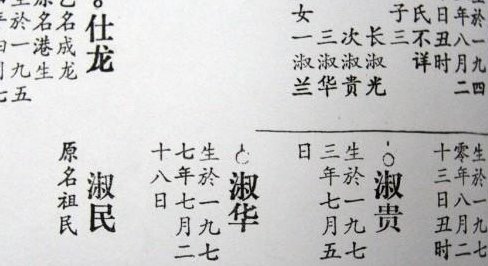 於一九四
年八月二
日丑时
氏不详
子三
长淑光
次淑贵
三淑华
女一淑兰
仕龙
名成龙
原名港生
生於一九五
年四月七
生於一九七
零年八月二
十三日丑时
淑贵
生於一九七
三年七月五
日
淑华
生於一九七
七年七月二
十八日
淑民
原名祖民